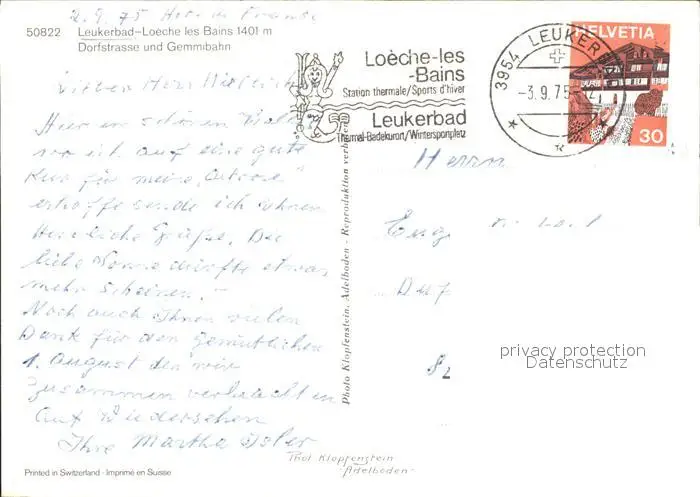 2.9.75 Hot. de France
50822 Leukerbad–Loèche les Bains 1401 m
Dorfstrasse und Gemmibahn
Loèche-les
-Bains
Station thermale/Sports d'hiver
Leukerbad
Thermal-Badekurort/Wintersportplatz
3954 LEUKERBAD
–3.9.75–12
HELVETIA
30
Lieber Herr
Hier im schönen
wo ich auf eine gute
Kur für meine
erhoffe sende ich Ihnen
Herzliche Grüsse. Die
liebe Sonne dürfte etwas
mehr scheinen.–
Noch auch Ihnen vielen
Dank für den gemütlichen
1. August den wir
zusammen verbracht
Auf Wiedersehen
Ihre Martha Isler
Herrn
Photo Klopfenstein, Adelboden - Reproduktion verboten
privacy protection
Datenschutz
Phot Klopfenstein
Adelboden
Printed in Switzerland · Imprimé en Suisse